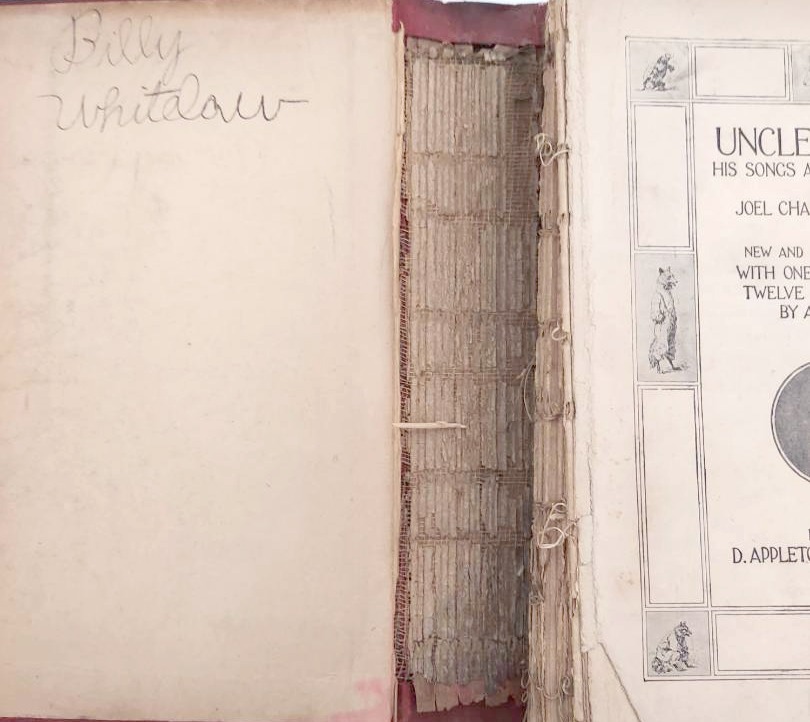 Billy
Whitelaw
UNCLE
HIS SONGS A
JOEL CHA
NEW AND
WITH ONE
TWELVE
BY A
D. APPLETO